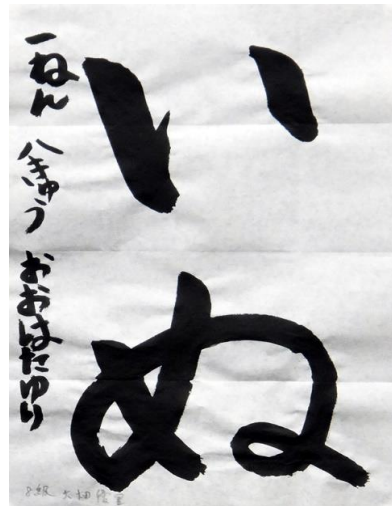 いぬ
一ねん 八きゅう おおはたゆり
8級